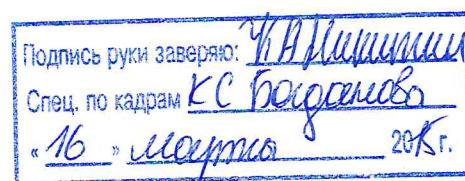 Подпись руки заверяю:
Спец. по кадрам КС Богданова
« 16 » марта 2015 г.